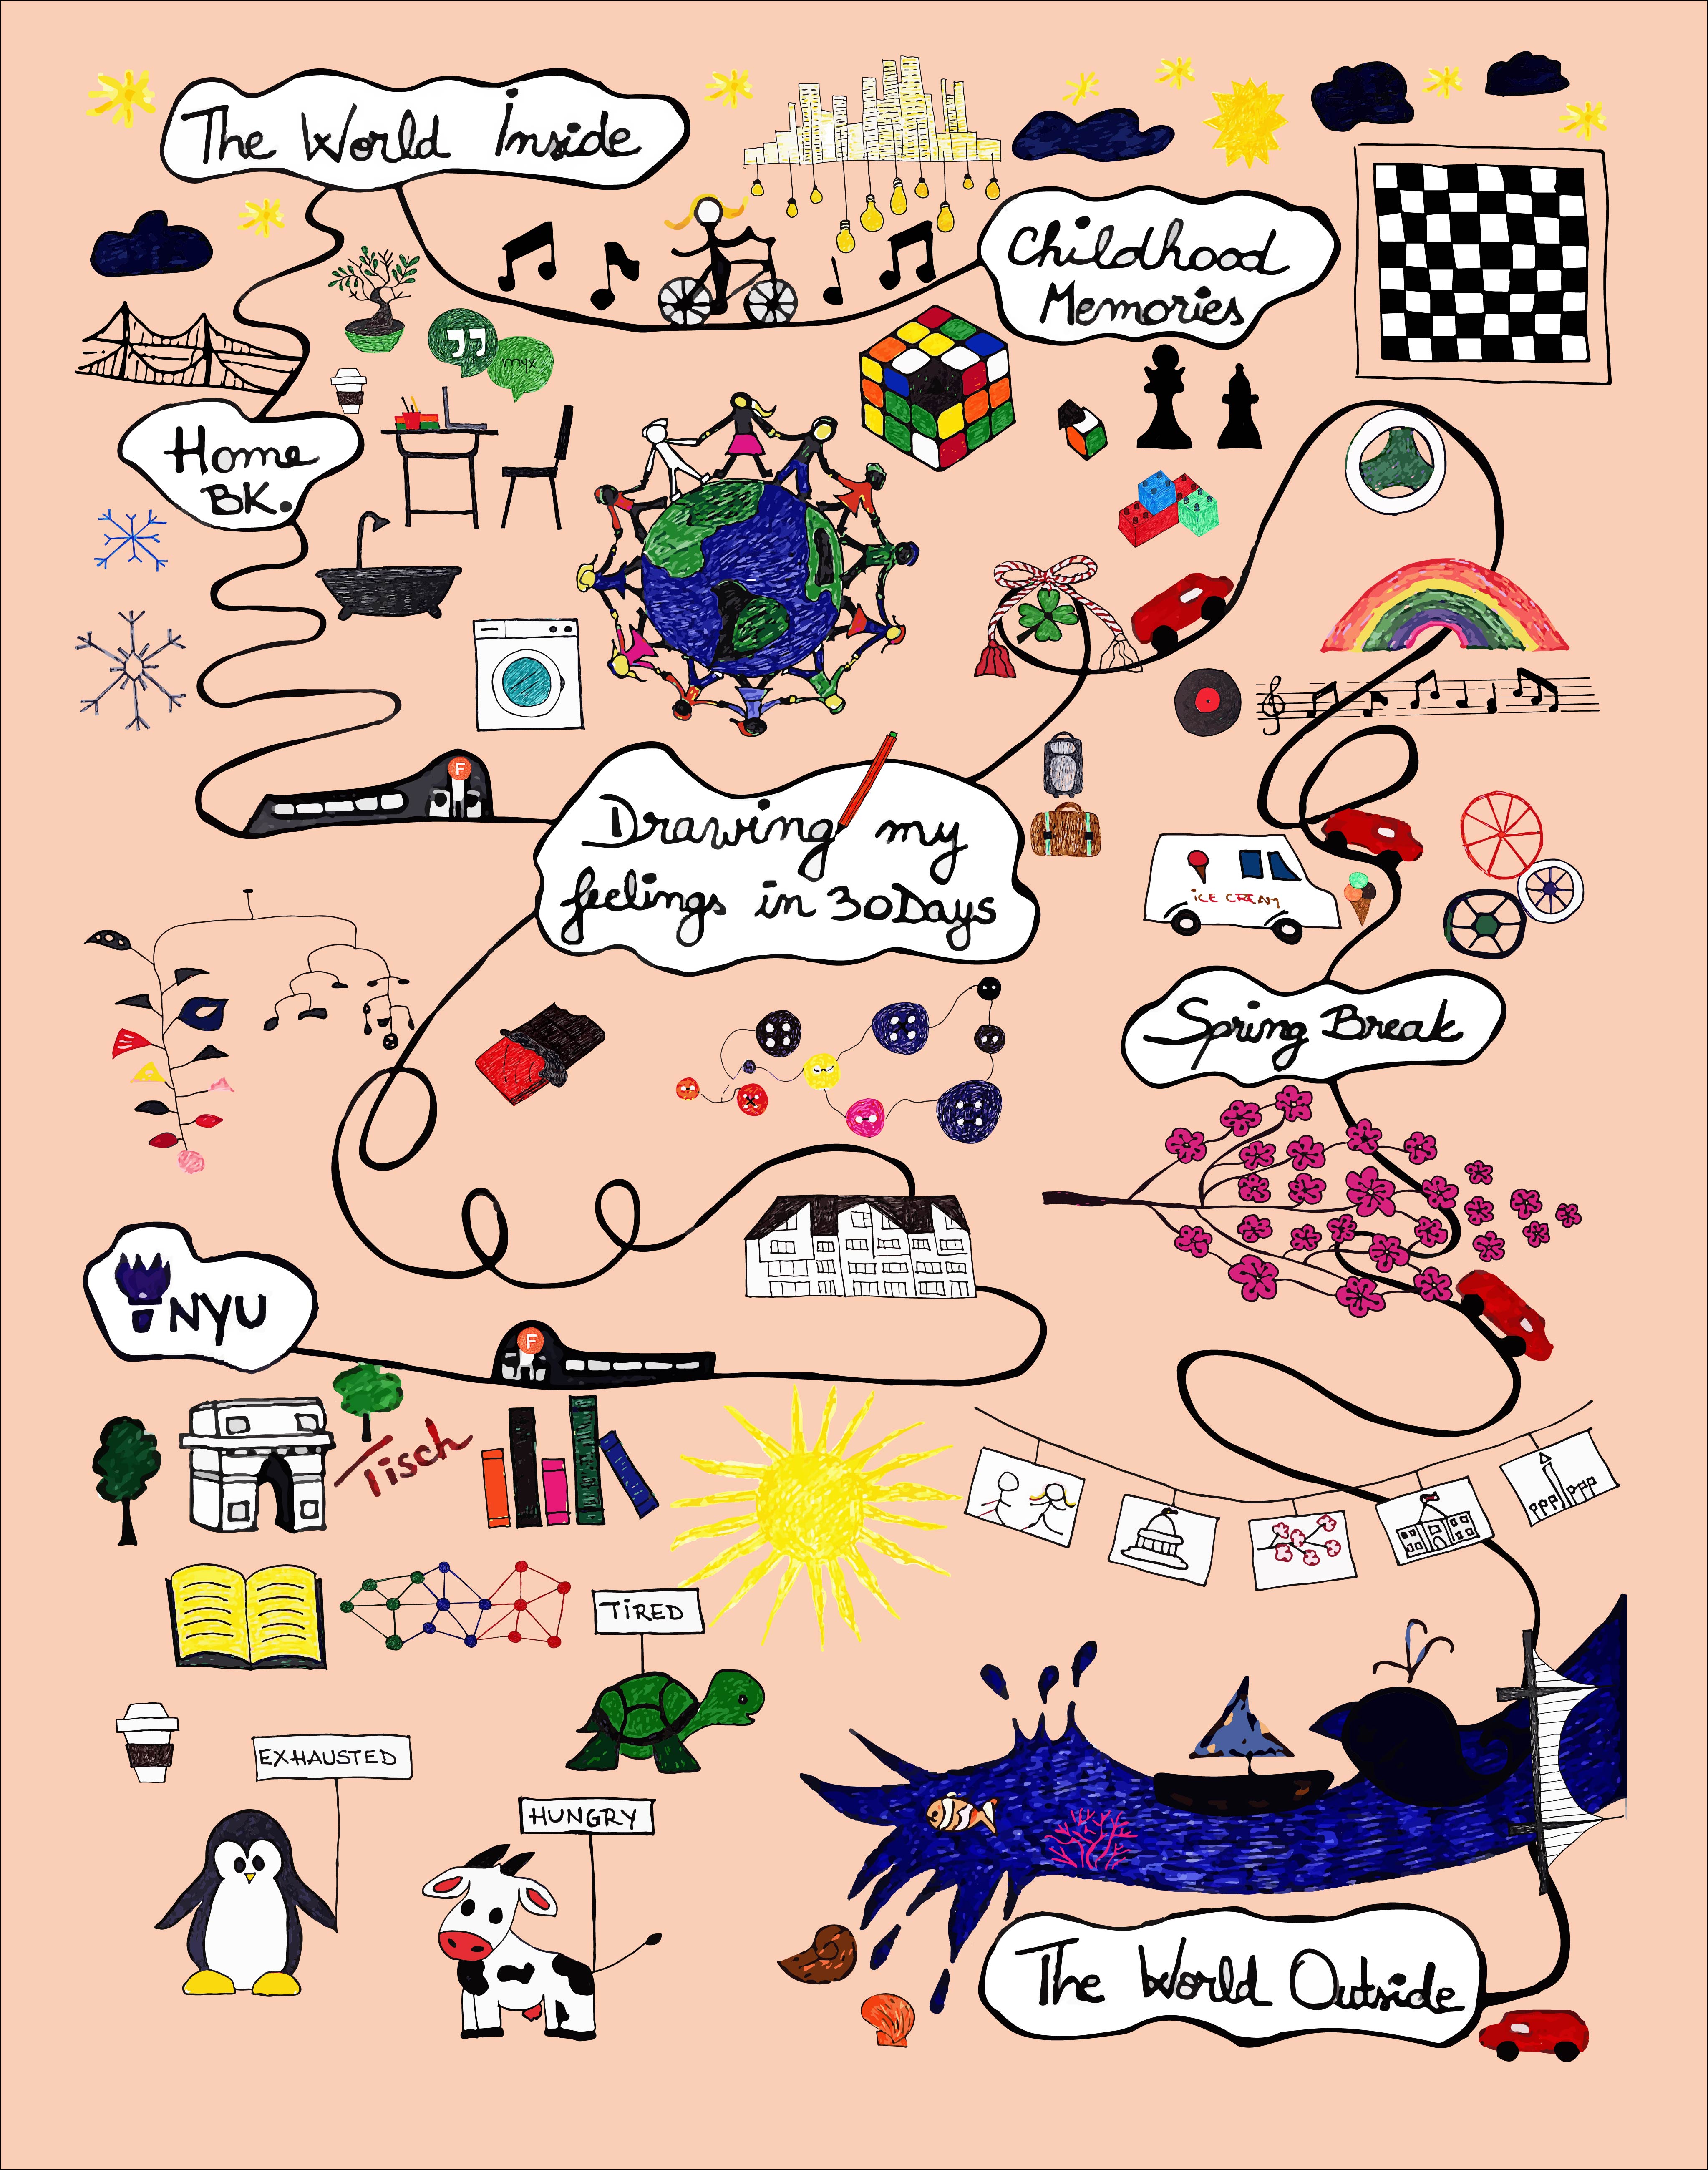 The World Inside
Childhood
Memories
Home
BK.
F
Drawing my
feelings in 30Days
ICE CREAM
Spring Break
NYU
F
Tisch
TIRED
EXHAUSTED
HUNGRY
The World Outside